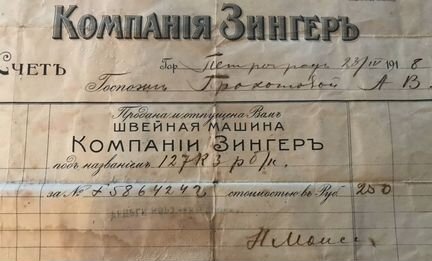 Компанія Зингеръ
Счетъ Гор. Петроградъ 23/IV 1918
Госпожѣ А В.
Продана и отпущена Вамъ
ШВЕЙНАЯ МАШИНА
Компаніи Зингеръ
подъ названіемъ 127К3 р/н.
за № F 5864242 стоимостью въ Руб. 250